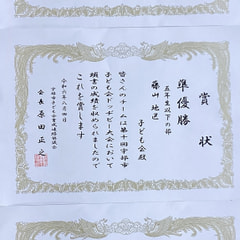 賞状
準優勝
五年生以下の部
藤山地区
子ども会殿
皆さんのチームは第十回宇部市
子ども会ドッヂビー大会において
頭書の成績を収められましたので
これを賞します
令和六年八月四日
宇部市子ども会育成連絡協議会
会長 原田正